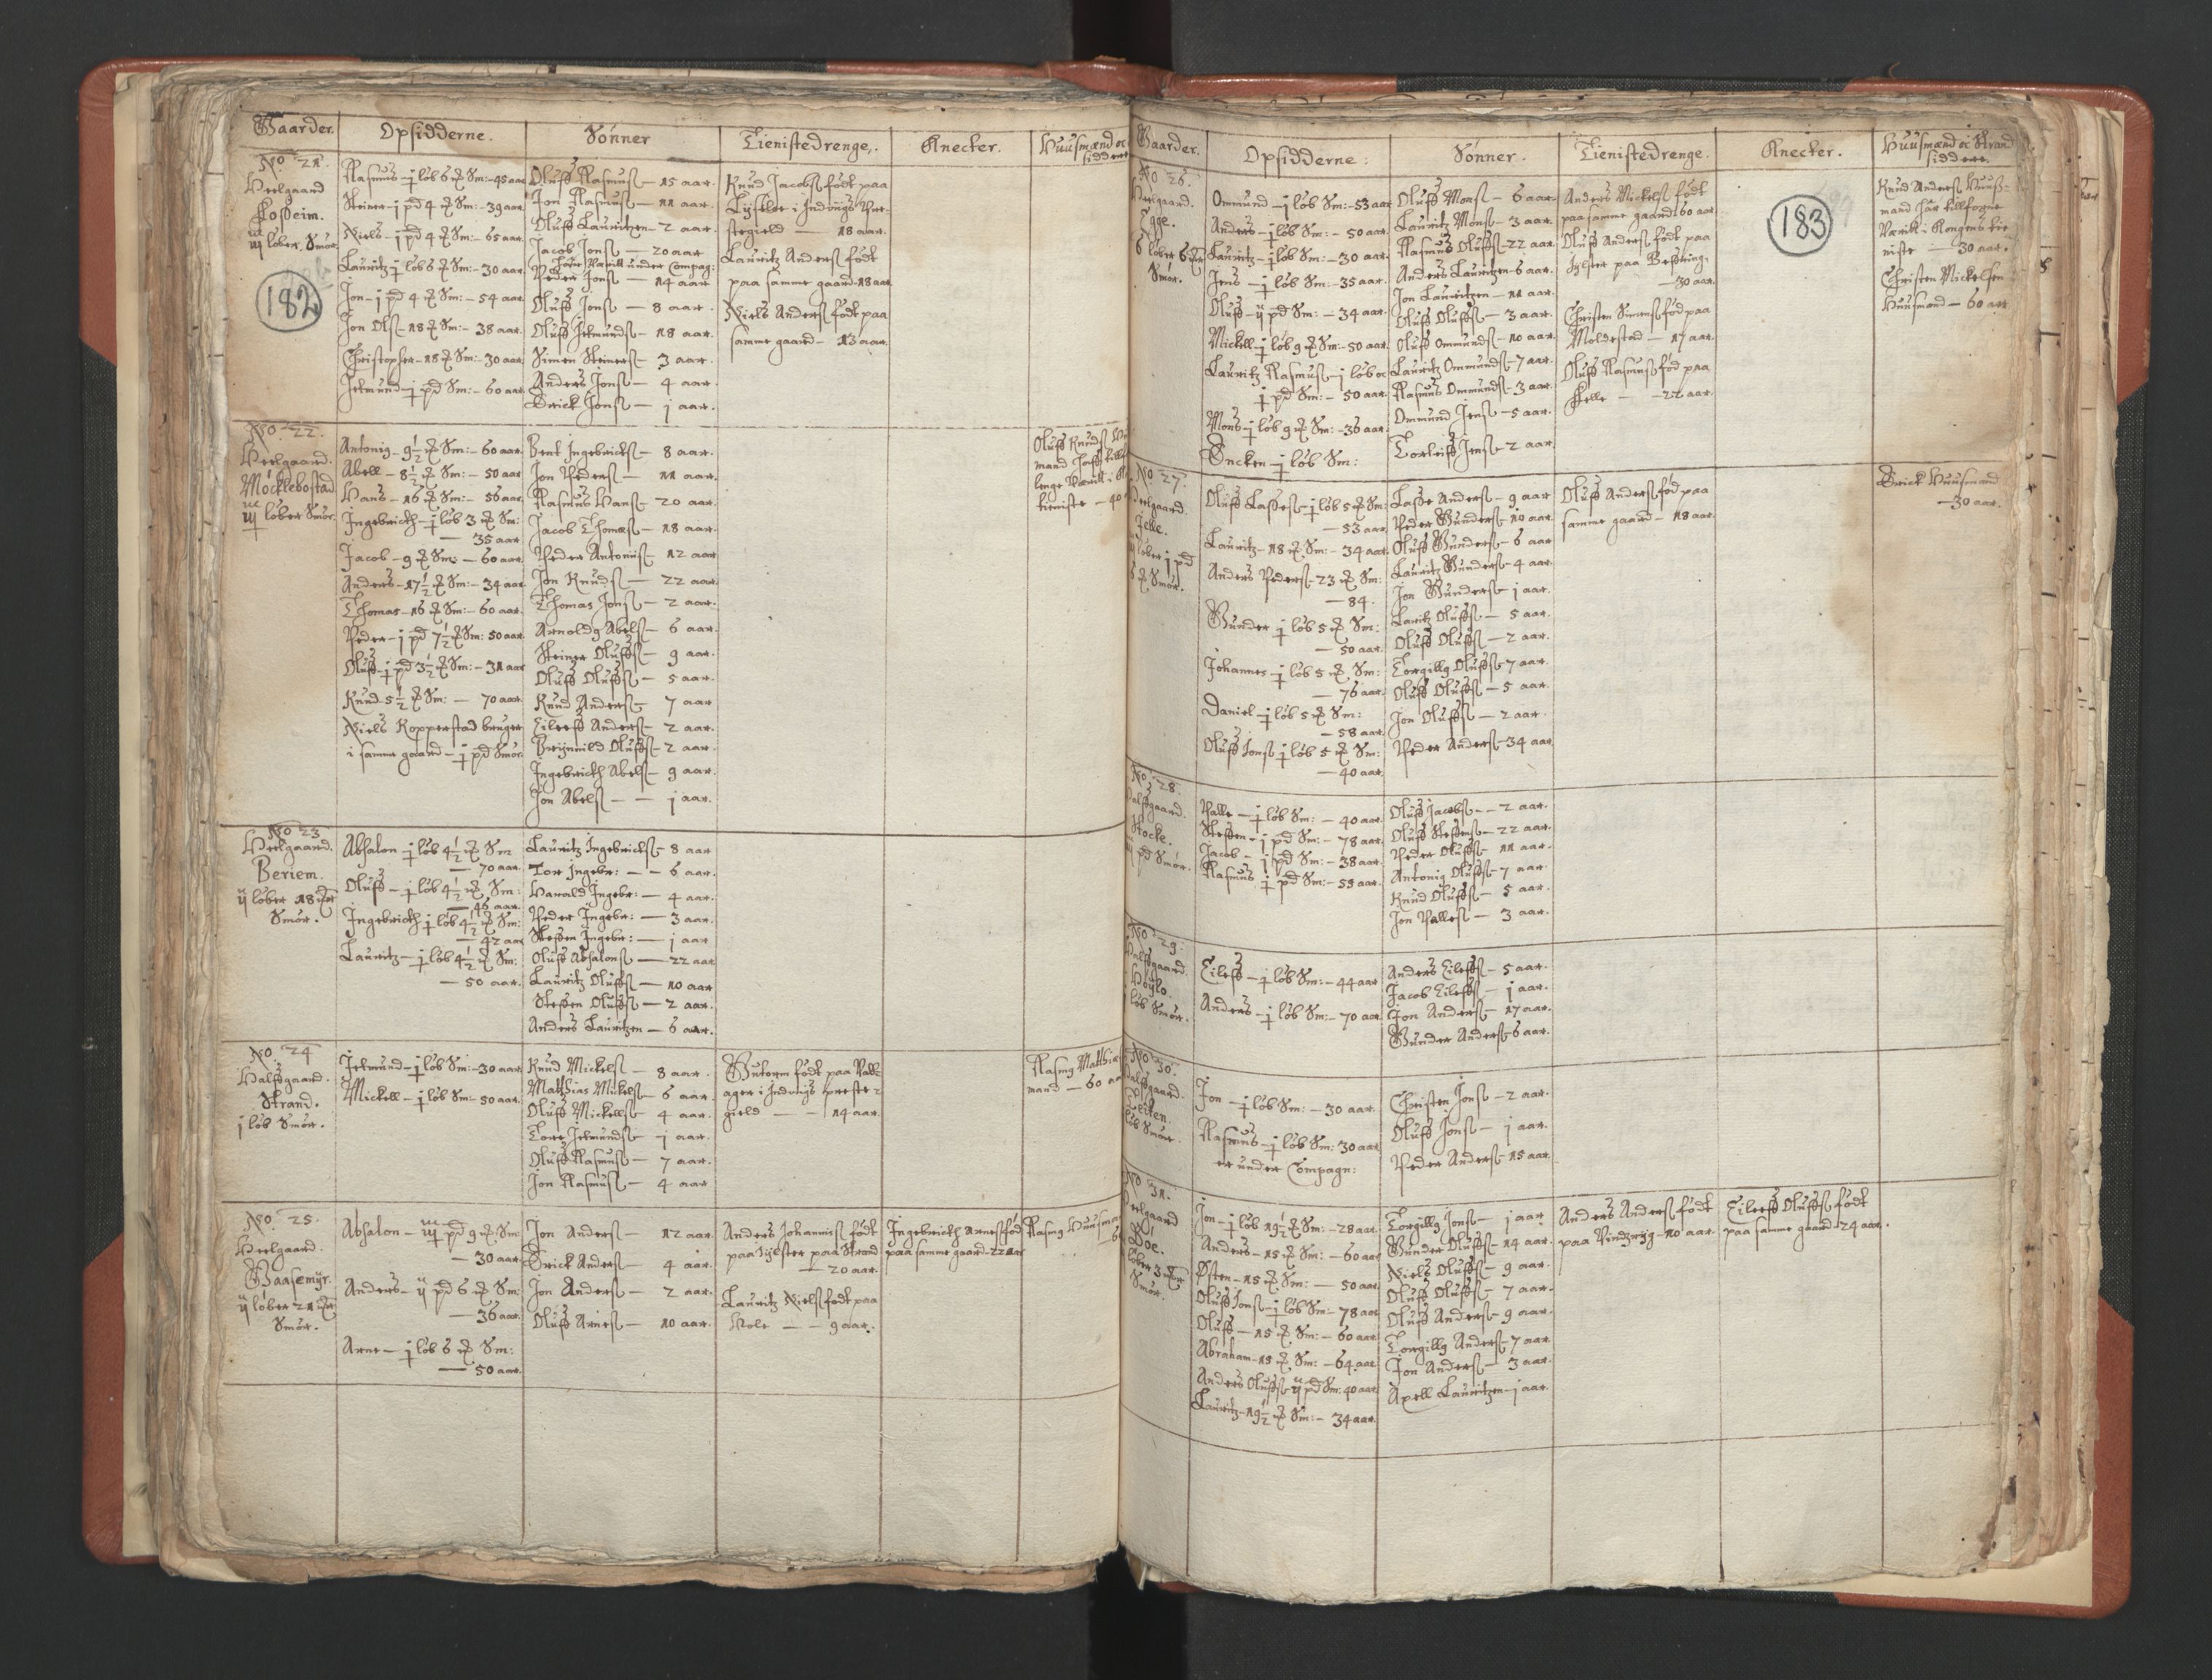 Gaarder.
Opsidderne.
Sönner
Tienistedrenge.
Knecter.
Huusmænd oc
sidderre
No. 21.
Heelgaard
Fosseim.
iij löber. Smör.
182
Rasmus - j löb 6 # Sm: - 45 aar
Steiner - j pd 4 # Sm: - 39 aar
Niels - j pd 4 # Sm: - 65 aar
Lauritz j löb 6 # Sm: - 30 aar.
Jon - j pd 4 # Sm: - 54 aar
Jon Ols - 18 # Sm: - 38 aar.
Christopher - 18 # Sm: - 30 aar
Jetmund - j pd Sm: - 60 aar
Oluff Rasmuss - 15 aar.
Jon Rasmuss - 11 aar.
Oluff Lauritzen - 2 aar.
Jacob Jonss - 20 aar
hafr Werritt under Compag:
Peder Jonss - 14 aar
Oluff Jonss - 8 aar.
Oluff Jetmunds - 18 aar.
Simen Steiners - 3 aar.
Anders Jonss - 4 aar.
Erick Jonss - j aar.
Knud Jacobss födt paa
i Indvigs Pre-
stegield - 18 aar.
Lauritz Anderss födt
paa samme gaard 18 aar
Niels Anderss födt paa
samme gaard - 13 aar
No. 22.
Heelgaard.
Möcklebostad
iij löber Smör.
Antonig - 9½ # Sm: - 60 aar.
Abell - 8½ # Sm: - 50 aar
Hans - 16 # Sm: - 56 aar.
Ingebricth - j löb 3 # Sm:
- 35 aar
Jacob - 9 # Sm: - 60 aar.
Anders - 17½ # Sm: - 34 aar
Thomas - 16 # Sm: - 60 aar.
Peder - j pd 7½ # Sm: 50 aar
Oluff - j pd 3½ # Sm: - 31 aar
Knud 5½ # Sm: - 70 aar.
Niels Kopperstad bruger
i samme gaard - j pd Smör.
Bent Ingebrictss - 8 aar.
Jon Pederss - 11 aar.
Rasmus Hanss - 20 aar.
Jacob Thomæss - 18 aar.
Peder Antoniss - 12 aar
Jon Knudss - 22 aar.
Thomas Jonss - 2 aar.
Arnoldg Abelss - 6 aar.
Steiner Oluffss - 9 aar.
Oluff Oluffss - 5 aar.
Knud Anderss - 7 aar
Eileff Anderss - 2 aar.
Brynnild Oluffss - 2 aar.
Ingebricth Abelss - 9 aar.
Jon Abelss - - j aar.
Oluff Knudss
mand
lenge Værritt i
tieniste - 40
No 23
Heelgaard.
Beriem.
ij löber 18 #
Smör.
Absalon - j löb 4½ # Sm
- 70 aar.
Oluff - j löb 4½ # Sm:
- 46 aar.
Ingebricth j löb 4½ # Sm:
- 42 aar
Lauritz - j löb 4½ # Sm:
- 50 aar.
Lauritz Ingebrictss - 8 aar
Tor Ingebr: - - 6 aar.
Harald Ingebr: - 4 aar.
Peder Ingebr: - 3 aar.
Steffen Ingebr: - j aar
Oluff Absalonss - 22 aar
Lauritz Oluffss - 10 aar
Steffen Oluffss - 2 aar.
Anders Lauritzen - 6 aar.
No. 24
Halffgaard.
Strand.
j löb Smör.
Jetmund - j löb Sm: - 30 aar.
Mickell - j löb Sm: 50 aar.
Knud Mickelss - 8 aar.
Matthias Mickelss - 6 aar.
Oluff Mickelss - 4 aar.
Tore Jetmundss - j aar.
Oluff Rasmuss - 7 aar.
Jon Rasmuss - 4 aar
Gutorm födt paa
ager i Indvigs preste-
gield - - 14 aar.
Rasmg Matthi
mand - 60 aar
No. 25.
Heelgaard.
Gaasemyr.
ij löber 21 #
Smör.
Absalon - iij pd 9 # Sm:
- 30 aar.
Anders - ij pd 6 # Sm:
- 36 aar.
Arne - j löb 6 # Sm:
- 50 aar.
Jon Anderss - 12 aar.
Erick Anderss - 4 aar.
Jon Anderss - 2 aar.
Oluff Arness - 10 aar.
Anders Johanniss födt
paa Jylster paa Strand
- 20 aar.
Lauritz Nielss födt paa
Hole - - 9 aar.
Ingebricth Arness föd
paa samme gaard - 22 aar
Rasmg Huusm
Gaarder.
Opsidderne:
Sönner.
Tienistedrenge.
Knecter.
Huusmænd oc Strand
siddere.
No 26.
Heelgaard.
Egge.
6 löber 6 #
Smör.
183
Ommund - j löb Sm: - 53 aar
Anders - j löb Sm: - 50 aar.
Lauritz - j löb Sm: - 30 aar.
Jens - j löb Sm: - 35 aar.
Oluff - ij pd Sm: - 34 aar.
Mickell - j löb 9 # Sm - 50 aar.
Lauritz Rasmuss - j löb oc
j pd Sm: - 50 aar.
Mons - j löb 9 # Sm: - 36 aar.
Encken - j löb Sm:
Oluff Monss - 6 aar.
Lauritz Monss - 3 aar.
Rasmus Oluffss - 22 aar.
Anders Lauritzen - 6 aar.
Jon Lauritzen - 11 aar.
Oluff Oluffss - 3 aar.
Oluff Ommundss - 10 aar.
Lauritz Ommundss - 7 aar.
Rasmus Ommundss - 3 aar.
Ommund Jenss - 5 aar.
Torleiff Jenss - 2 aar.
Anders Mickelss födt
paa samme gaard 60 aar.
Oluff Anderss födt paa
Jylster paa Befring.
- 30 aar.
Christen Simenss föd paa
Moldestad - 17 aar.
Oluff Rasmuss föd paa
Felle - - 22 aar.
Knud Anderss Huuss-
mand hafr tillforne
Værritt i Kongens tie
niste - 30 aar.
Christen Mickelsen
Huusmand - 60 aar
No. 27.
Heelgaard.
löber j pd
# Smör.
Oluff Lassess - j löb 5 # Sm:
- 53 aar
Lauritz - 18 # Sm: - 34 aar.
Anders Pederss - 23 # Sm:
- 84.
Gunder j löb 5 # Sm:
- 50 aar.
Johannes - j löb 5 # Sm:
- 76 aar
Daniel - j löb 5 # Sm:
- 58 aar
Oluff Jonss j löb 5 # Sm:
- 40 aar
Lasse Anderss - 9 aar
Peder Gunderss - 10 aar.
Oluff Gunderss - 6 aar
Lauritz Gunderss - 4 aar.
Jon Gunderss - j aar.
Laritz Oluffss - 5 aar.
Oluff Oluffss - 2 aar.
Torgillg Oluffss - 7 aar.
Oluff Oluffss - 5 aar.
Jon Oluffss - 2 aar.
Peder Anderss - 34 aar
Oluff Anderss föd paa
samme gaard - 18 aar.
Erick Huusmand
- 30 aar.
No. 28.
Halffgaard.
Stocke.
pd Smör.
Palle - j löb Sm: - 40 aar.
Steffen - j pd Sm: - 78 aar.
Jacob - j pd Sm: - 38 aar.
Rasmus j pd Sm: - 59 aar.
Oluff Jacobss - - 2 aar.
Oluff Steffenss - 22 aar.
Peder Oluffss - 11 aar.
Antonig Oluffss - 7 aar.
Knud Oluffss - 5 aar.
Jon Palless - 3 aar.
No 29.
Halffgaard.
löb Smör.
Eileff - j löb Sm: - 44 aar
Anders - j löb Sm: - 70 aar.
Anders Eileffss - 5 aar.
Jacob Eileffss - j aar.
Jon Anderss - 17 aar.
Gunder Anderss - 6 aar.
No 30.
Halffgaard.
löb Smör.
Jon - j löb Sm: - 30 aar.
Rasmus - j löb Sm: 30 aar
er under Compagn:
Christen Jonss - 2 aar.
Oluff Jonss - j aar.
Peder Anderss - 15 aar.
No 31.
Heelgaard
Boe.
löber 3 #
Smör.
Jon - j löb 19½ # Sm: - 28 aar.
Anders - 15 # Sm: - 60 aar
Östen - 15 # Sm: - 50 aar.
Oluff Jonss - j löb Sm: - 78 aar
Oluff - 15 # Sm: - 60 aar
Abraham - 15 # Sm: - 64 aar
Anders Oluffss ij pd Sm: 40 aar
Lauritz - 19½ # Sm: - 34 aar.
Torgillg Jonss - j aar
Gunder Oluffss - 14 aar.
Niels Oluffss - 9 aar.
Oluff Oluffss - 7 aar.
Oluff Anderss - 9 aar.
Torgillg Anderss 7 aar.
Jon Anderss - 3 aar.
Axell Lauritzen - j aar.
Anders Anderss födt
paa - 10 aar.
Eileff Oluffss födt
paa samme gaard - 24 aar.